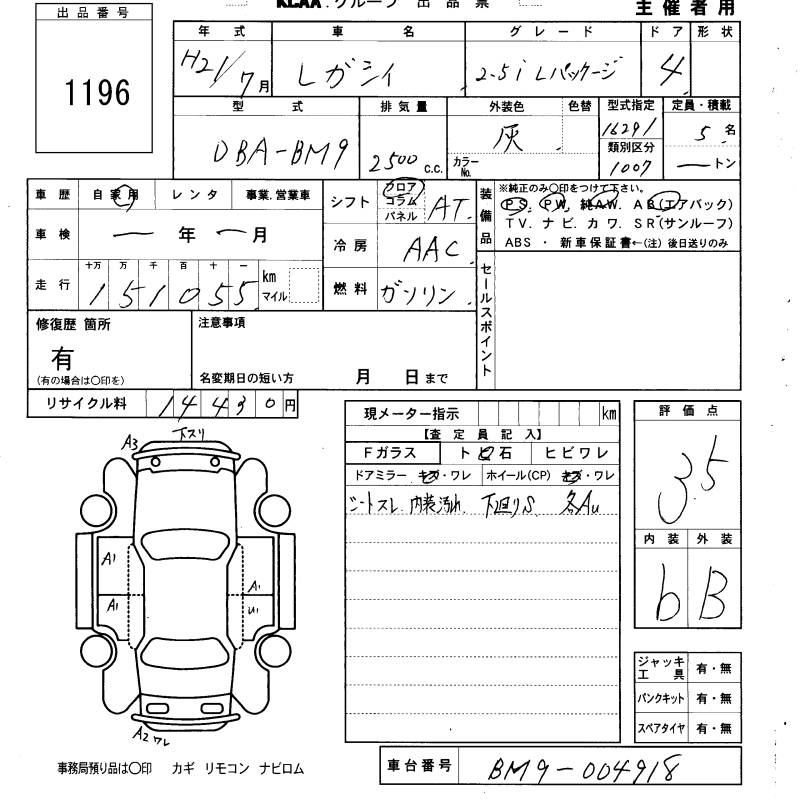 KCAA.グループ 出品票
主催者用
出品番号
1196
年式 車名 グレード ドア 形状
H21/7月 レガシィ 2.5i Lパッケージ 4
型式 排気量 外装色 色替 型式指定 定員・積載
DBA-BM9 2500c.c. 灰 カラーNo. 16291 5名
類別区分
1007 ートン
車歴 自家用 レンタ 事業.営業車
車検 ー年ー月
走行 十万 万 千 百 十 一
151055 km マイル
シフト フロア コラム パネル AT
冷房 AAC
燃料 ガソリン
装備品
※純正のみ○印をつけて下さい。
PS. PW. 純AW. AB(エアバック)
TV. ナビ. カワ. SR(サンルーフ)
ABS ・ 新車保証書←(注) 後日送りのみ
セールスポイント
修復歴 箇所
有
(有の場合は○印を)
注意事項
名変期日の短い方 月 日まで
リサイクル料 14430円
現メーター指示 km
【査定員記入】
Fガラス トビ石 ヒビワレ
ドアミラー キズ・ワレ ホイール(CP) キズ・ワレ
シートスレ 内装汚れ 下廻りS 各AU
評価点
3.5
内装 外装
b B
A3 下スリ
A1 A1
A1 U1
A2ワレ
ジャッキ工具 有・無
パンクキット 有・無
スペアタイヤ 有・無
事務局預り品は○印 カギ リモコン ナビロム
車台番号 BM9-004918